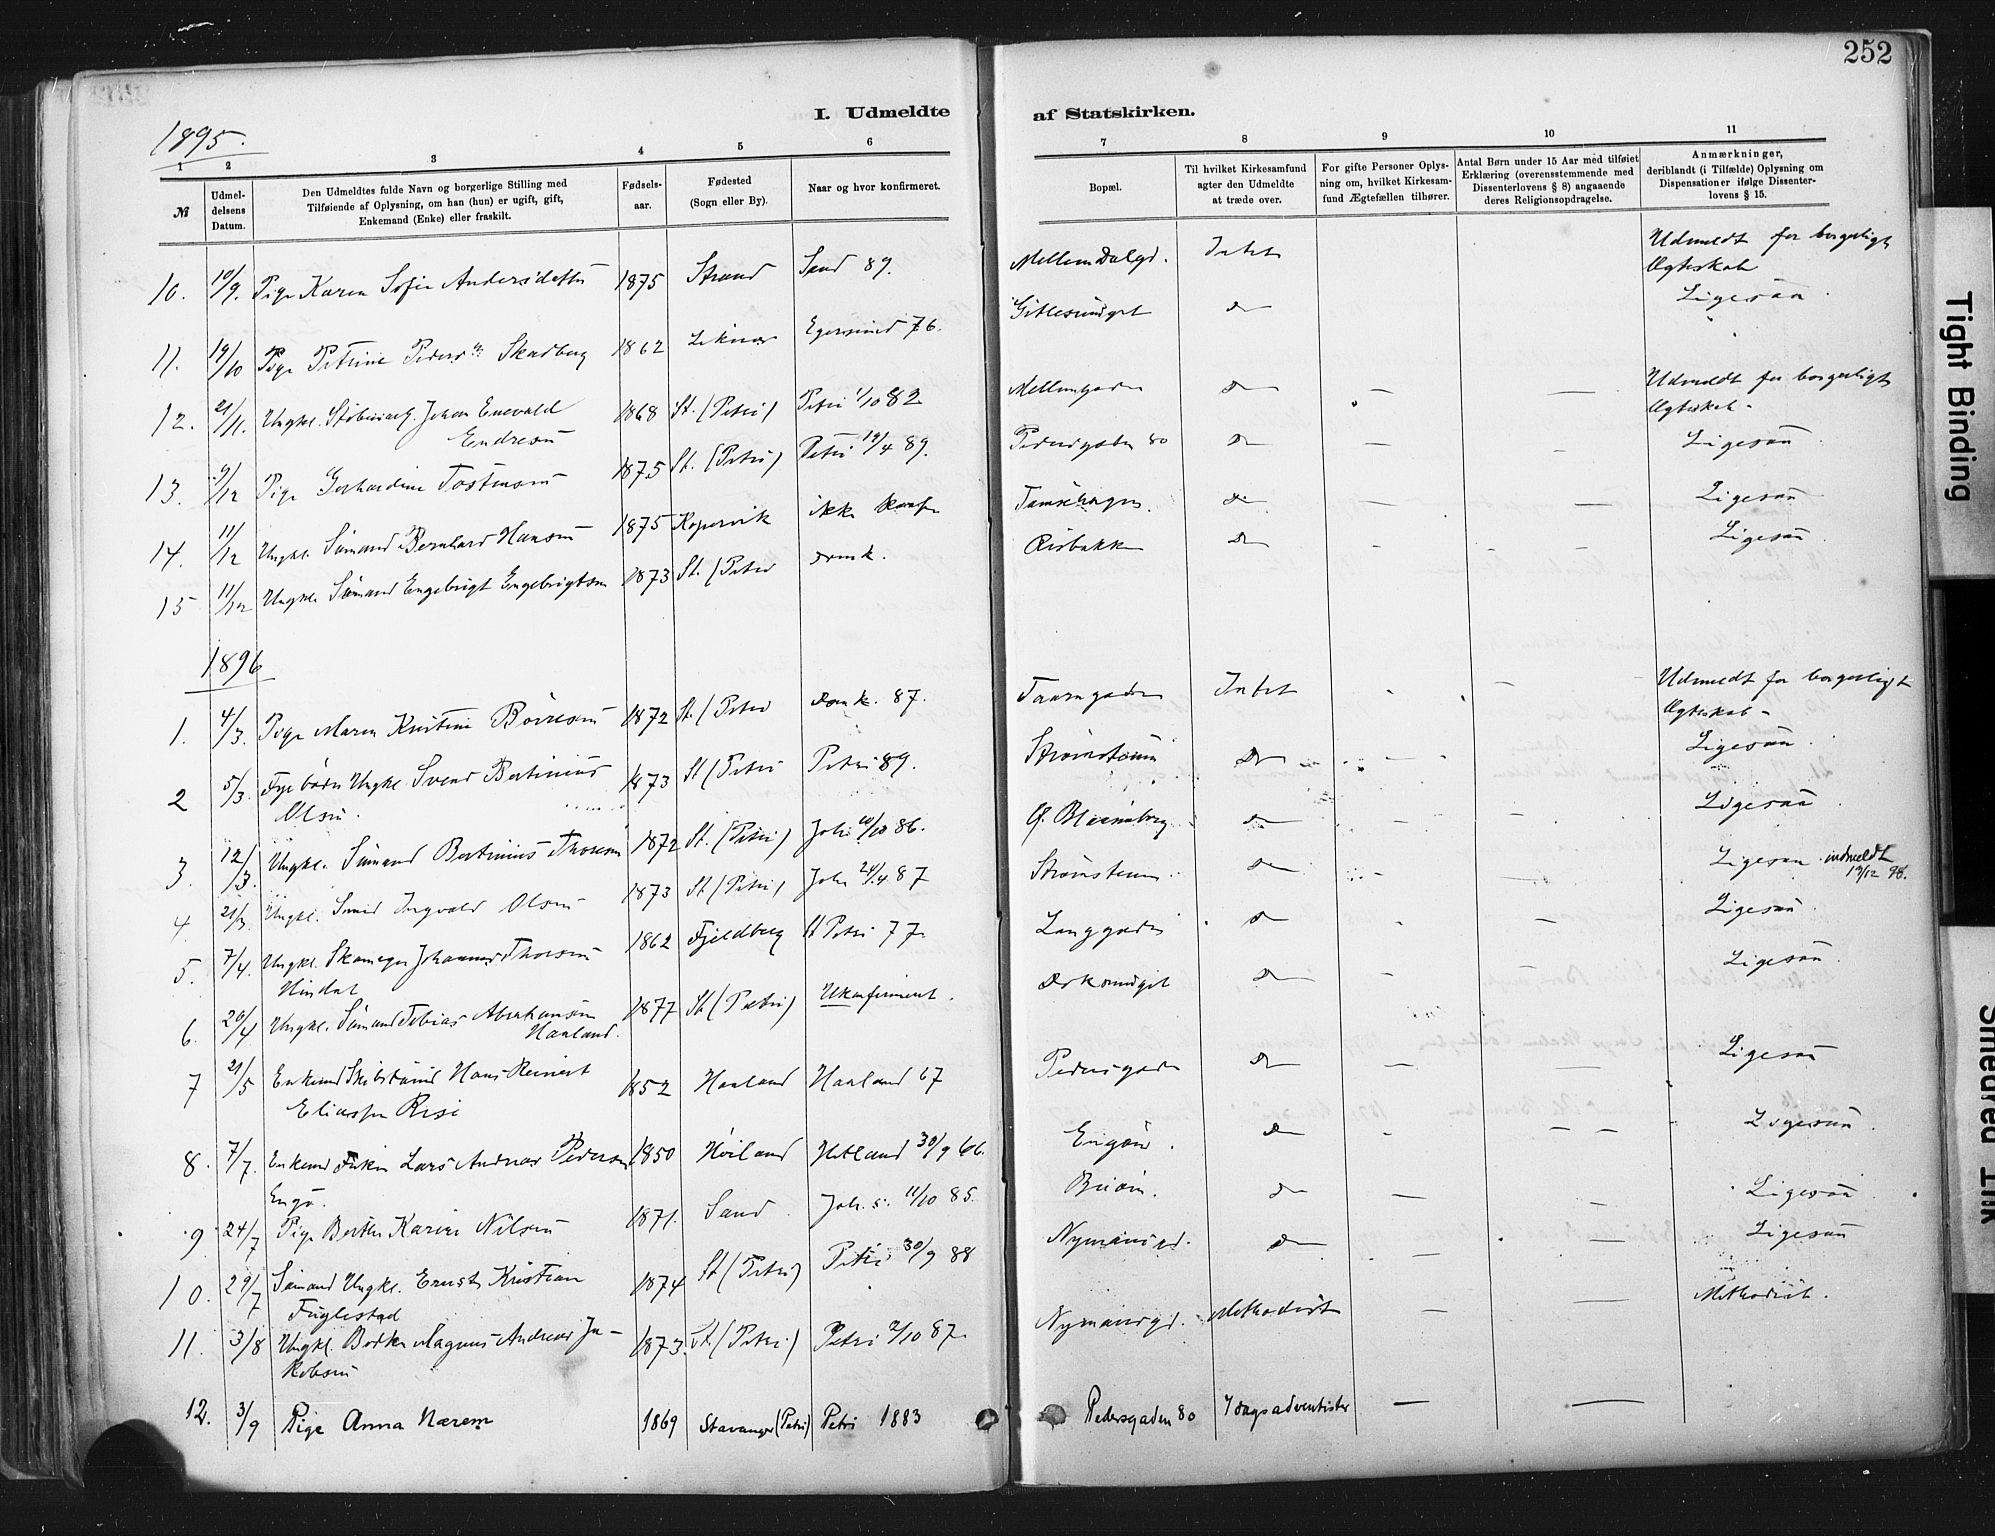 252
I. Udmeldte af Statskirken.
1895.
1 2 3 4 5 6 7 8 9 10 11
№
Udmel-
delsens
Datum.
Den Udmeldtes fulde Navn og borgerlige Stilling med
Tilføiende af Oplysning, om han (hun) er ugift, gift,
Enkemand (Enke) eller fraskilt.
Fødsels-
aar.
Fødested
(Sogn eller By).
Naar og hvor konfirmeret.
Bopæl.
Til hvilket Kirkesamfund
agter den Udmeldte
at træde over.
For gifte Personer Oplys-
ning om, hvilket Kirkesam-
fund Ægtefællen tilhører.
Antal Børn under 15 Aar med tilføiet
Erklæring (overensstemmende med
Dissenterlovens § 8) angaaende
deres Religionsopdragelse.
Anmærkninger,
deriblandt (i Tilfælde) Oplysning om
Dispensationer ifølge Dissenter-
lovens § 15.
10. 10/9. Pige Karen Sofie Andersdatter 1875 Strand Sand 89. Intet Udmeldt for borgerligt
Ægteskab
11. 19/10 Pige Petrine Skadberg 1862 Egersund 76. Do Ligesaa.
12. 21/11. Ungkl. Johan Enevald 1868 St. (Petri) Petri 1/10 82 Mellemgaden Do — — Udmeldt for borgerligt
Endresen Ægteskab -
13. 9/12 Pige Gerhardine Tostensen 1875 St. (Petri) Petri 19/4 89. Pedersgaden 80 Do — - Ligesaa
14. 11/12 Ungkl. Sømand Bernhard Hansen 1875 Kopervik ikke konf. Do — — Ligesaa
15 11/12 Ungkl. Sømand Engebrigt Engebrigtsen 1873 St. (Petri Domk. Risbakken Do - - Ligesaa.
1896
1. 4/3. Pige Maren Kristine 1872 St. (Petri Domk. 87. Taarngaden Intet - - Udmeldt for borgerligt
Ægteskab -
2 5/3. Fyrbøder Ungkl. Svend Bertinius 1873 St (Petri Petri 89. Strømsteinen Do - Ligesaa.
Olsen.
3. 12/3. Ungkl. Sømand Bertinius Thorsen 1872 St. (Petri) Joh. 10/10 86. Ø. Blaasenborg Do - - Ligesaa.
4. 21/3. Ungkl. Smed Ingvald Olsen 1873 St (Petri) Joh. 24/4 87 Strømsteinen. Do - Ligesaa indmeldt
13/12 98.
5. 7/4. Ungkl. Skomager Johannes Thorsen 1862 Fjeldberg St Petri 77. Langgaden Do - - Ligesaa
6. 20/4 Ungkl. Sømand Tobias Abrahamsen 1877 St (Petri) Ukonfirmeret. Do - - Ligesaa.
Haaland.
7 21/5 Enkemd Hans Reinert 1852 Haaland Haaland 67 Pedersgaden Do — — Ligesaa
Eliassen Risa
8. 7/7. Enkemd Fisker Lars Andreas Pedersen 1850 Høiland Hetland 30/9 66. Engøen. Do - — Ligesaa.
Engø.
9 24/7 Pige Berthe Karine Nilsen 1871. Sand. Joh. s. 11/10 85. Do — — Ligesaa
10. 29/7 Sømand Ungkl. Ernst Kristian 1874 St (Petri) Petri 30/9 88 Nymansgd. Do — — Ligesaa
Fuglestad
11. 3/8 Ungkl. Magnus Andreas Ja- 1873. St. (Petri) Petri 2/10 87. Nymansgd. Methodist — — Methodist.
kobsen
12. 3/9 Pige Anna Nærem 1869 Stavanger (Petri) Petri 1883 Pedersgaden 80 7dagsadventister — —
Tight Binding
Smeared Ink